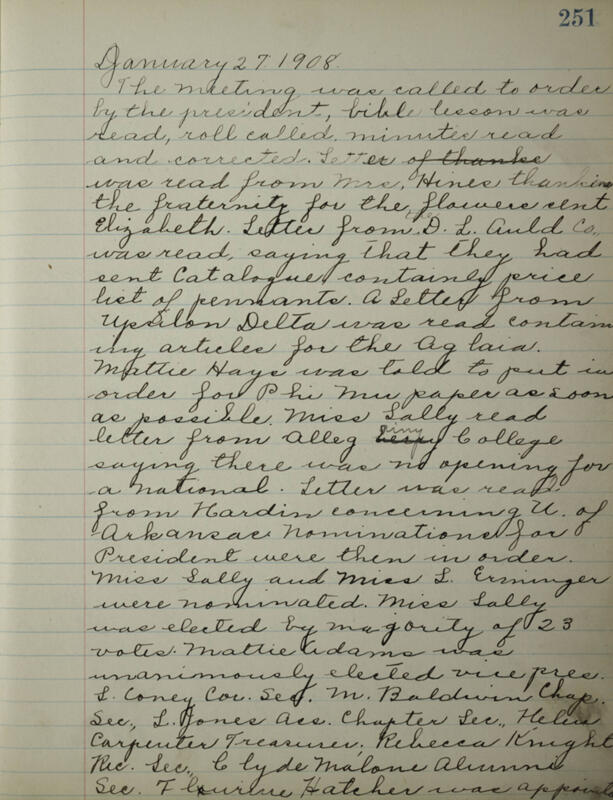 251
January 27 1908.
The meeting was called to order
by the president, bible lesson was
read, roll called. minutes read
and corrected. Letter of thanks
was read from Mrs. Hines thanking
the fraternity for the flowers sent
Elizabeth. Letter from the D. L. Auld Co.,
was read, saying that they had
sent Catalogue containing price
list of pennants. A Letter from
Upsilon Delta was read contain
ing articles for the Aglaia.
Mattie Hays was told to put in
order for Phi Mu paper as soon
as possible. Miss Lally read
letter from Alleg hiny College
saying there was no opening for
a national. Letter was read
from Hardin concerning U. of
Arkansas Nominations for
President were then in order.
Miss Lally and Miss L. Erminger
were nominated. Miss Lally
was elected by magority of 23
votes. Mattie Adams was
unanimously elected vice pres.
L. Coney Cor. Sec. M. Baldwin Chap.
Sec., L. Jones Acs. Chapter Sec., Helen
Carpenter Treasurer, Rebecca Knight
Rec. Sec., Clyde Malone Alumni
Sec. Flourine Hatcher was appointe